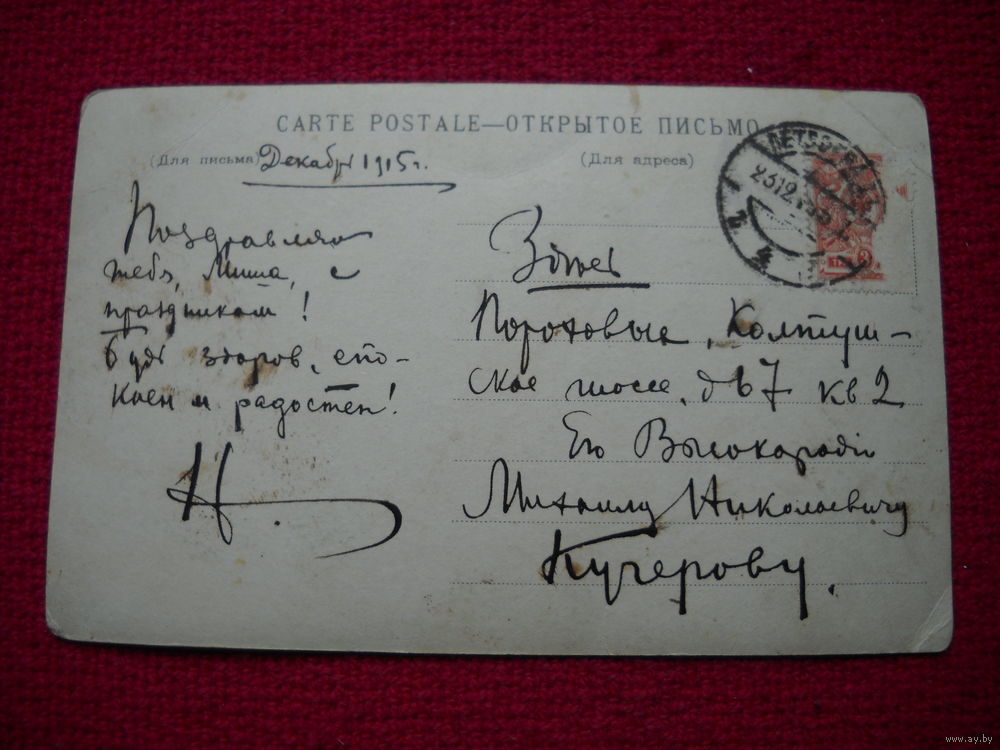 CARTE POSTALE—ОТКРЫТОЕ ПИСЬМО
(Для письма) Декабрь 1915 г.
(Для адреса)
Поздравляю
тебя, Миша, с
праздником!
Будь здоров, спо-
коен и радостен!
Н.
23 12
Здесь
Пороховые, Колтуш-
ское шоссе, д 67 кв 2
Его Высокородiю
Михаилу Николаевичу
Кучерову.
www.ay.by